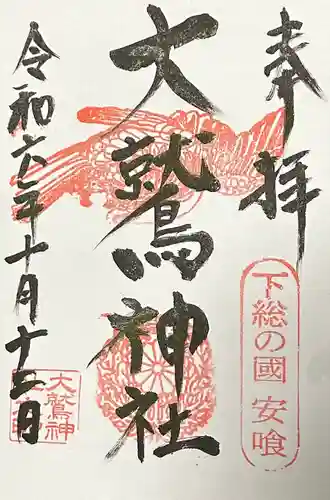 奉拝
下総の國 安喰
大鷲神社
令和六年十月十二日
大鷲神